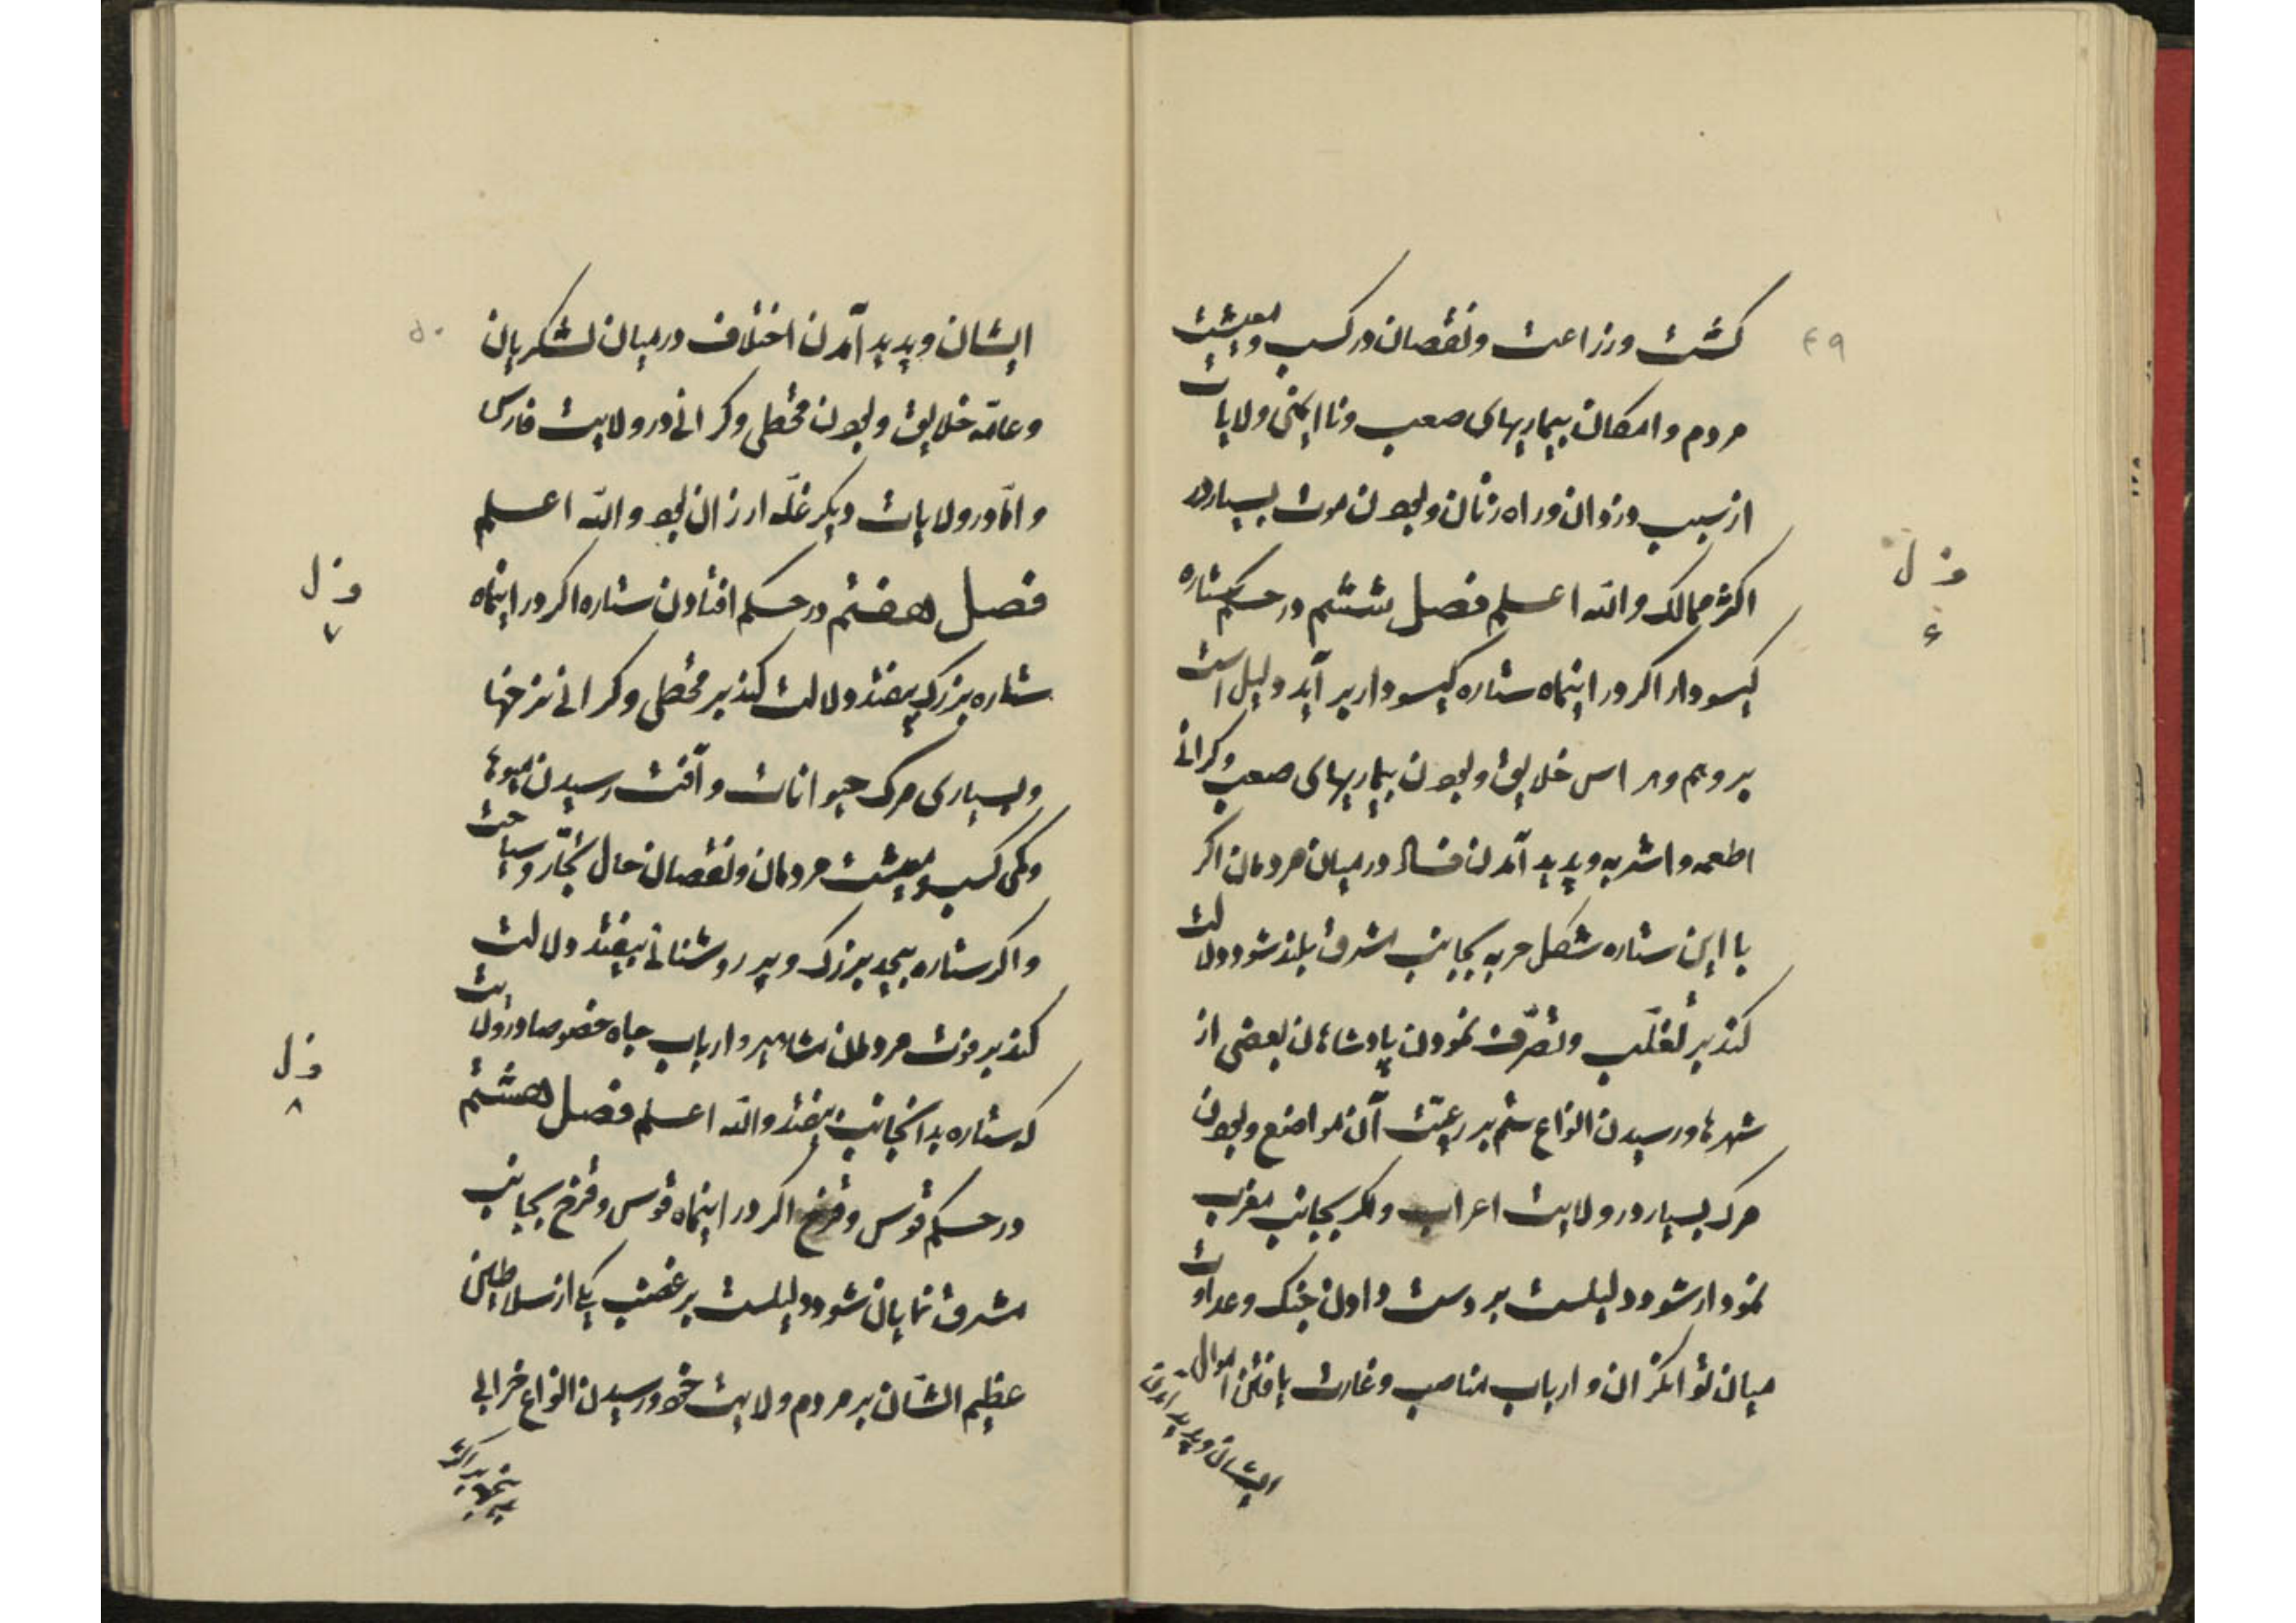 ۴۹
کشت و زراعت و نقصان در کسب و معیشت
مردم و امکان بیماریهای صعب و ناایمنی ولایات
از سبب دزدان و راه زنان و بودن موت بسیار در
اکثر ممالک والله اعلم فصل ششم در حکم ستاره
کیسودار اکر در اینماه ستاره کیسودار بر آید دلیل است
بر وهم و هراس خلایق و بودن بیماریهای صعب و کرانی
اطعمه و اشربه و پدید آمدن فساد در میان مردمان اکر
با این ستاره شکل حربه بجانب مشرق بلند شود دلالت
کند بر تغلّب و تصرّف نمودن پادشاهان بعضی از
شهرها و رسیدن انواع ستم بر رعیّت آن مواضع و بودن
مرک بسیار در ولایت اعراب و اکر بجانب مغرب
نمودار شود دلیلست بر دست دادن جنک و عداوت
میان توانکران و ارباب مناصب و غارت یافتن اموال
ایشان و پدید آمدن
فصل
۶
۵۰
ایشان و پدید آمدن اختلاف در میان لشکریان
و عامّه خلایق و بودن قحطی و کرانی در ولایت فارس
و امّا در ولایات دیکر غلّه ارزان بود والله اعلم
فصل هفتم در حکم افتادن ستاره اکر در اینماه
ستاره بزرک بیفتد دلالت کند بر قحطی و کرانی نرخها
و بسیاری مرک حیوانات و آفت رسیدن میوها
و کمی کسب و معیشت مردمان و نقصان حال تجّار و سیاحت
و اکر ستاره بیحد بزرک و پر روشنائی بیفتد دلالت
کند بر فوت مردمان مشاهیر و ارباب جاه خصوصا در ولایت
که ستاره بدانجانب بیفتد والله اعلم فصل هشتم
در حکم قوس و قزح اکر در اینماه قوس و قزح بجانب
مشرق نمایان شود دلیلست بر غضب یکی از سلاطین
عظیم الشّان بر مردم ولایت خود و رسیدن انواع خرابی
فصل
۷
فصل
۸